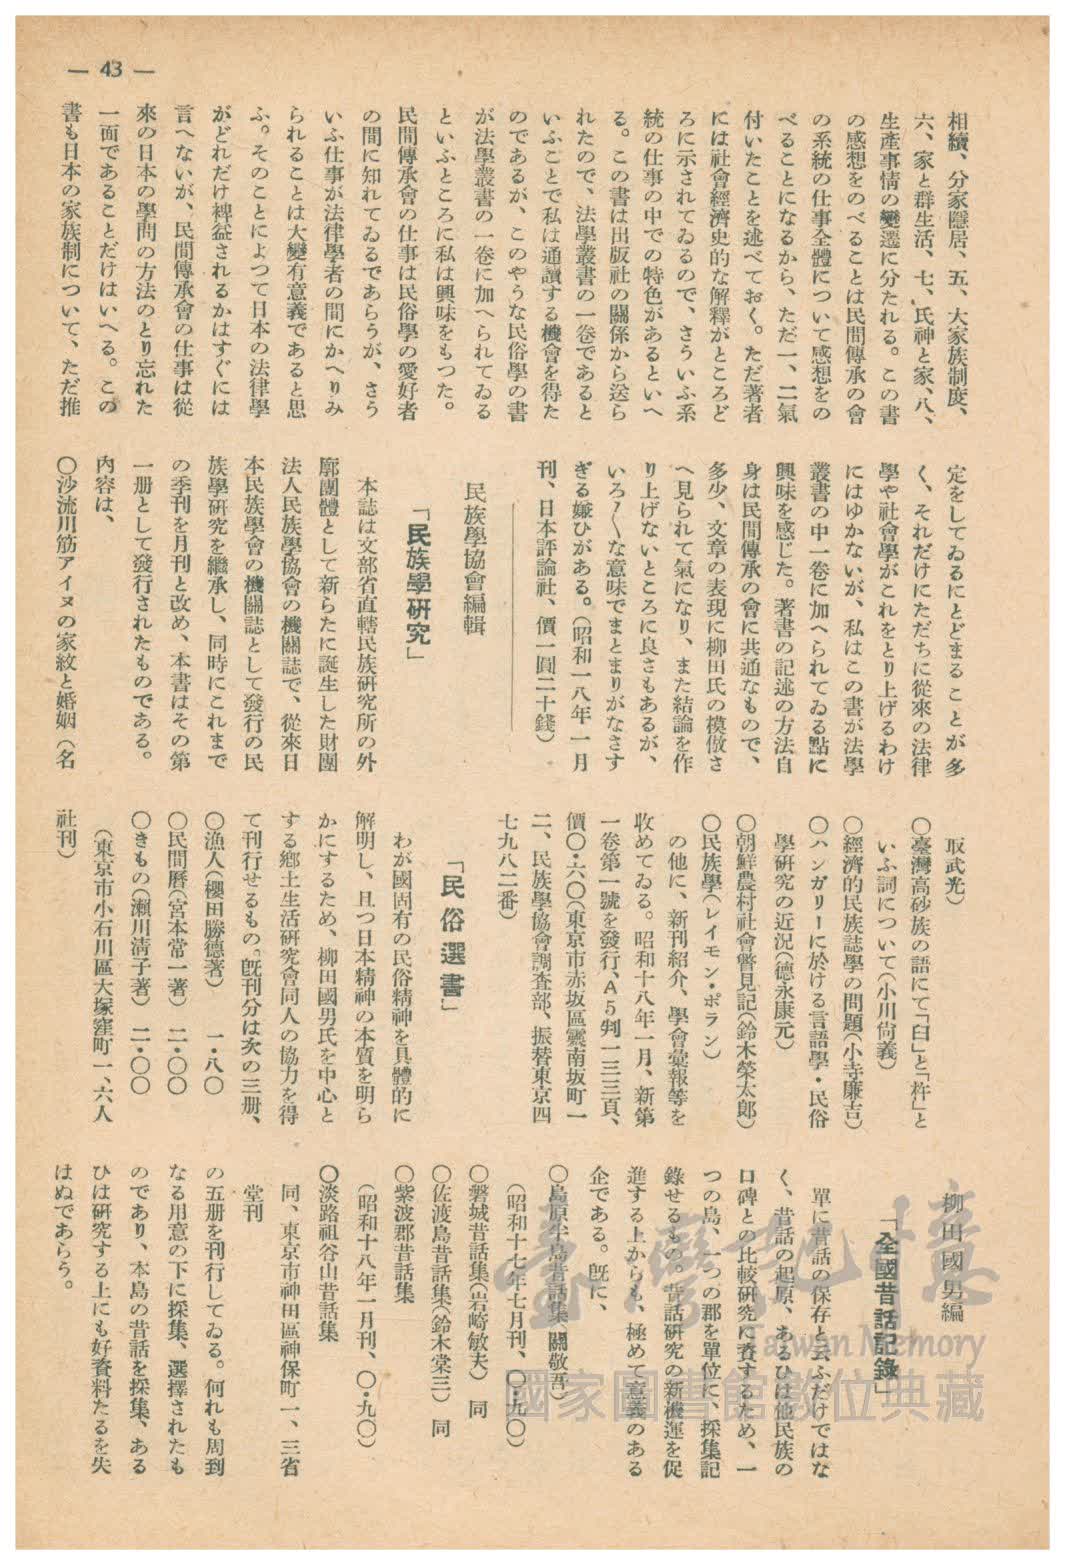 — 43 —
相續、分家隱居、五、大家族制度、
六、家と群生活、七、氏神と家、八、
生產事情の變遷に分たれる。この書
の感想をのべることは民間傳承の會
の系統の仕事全體について感想をの
べることになるから、ただ一、二氣
付いたことを述べておく。ただ著者
には社會經濟史的な解釋がところど
ろに示されてゐるので、さういふ系
統の仕事の中での特色があるといへ
る。この書は出版社の關係から送ら
れたので、法學叢書の一卷であると
いふことで私は通讀する機會を得た
のであるが、このやうな民俗學の書
が法學叢書の一卷に加へられてゐる
といふところに私は興味をもつた。
民間傳承會の仕事は民俗學の愛好者
の間に知れてゐるであらうが、さう
いふ仕事が法律學者の間にかへりみ
られることは大變有意義であると思
ふ。そのことによつて日本の法律學
がどれだけ裨益されるかはすぐには
言へないが、民間傳承會の仕事は從
來の日本の學問の方法のとり忘れた
一面であることだけはいへる。この
書も日本の家族制について、ただ推
定をしてゐるにとどまることが多
く、それだけにただちに從來の法律
學や社會學がこれをとり上げるわけ
にはゆかないが、私はこの書が法學
叢書の中一卷に加へられてゐる點に
興味を感じた。著書の記述の方法自
身は民間傳承の會に共通なもので、
多少、文章の表現に柳田氏の模倣さ
へ見られて氣になり、また結論を作
り上げないところに良さもあるが、
いろ〱な意味でまとまりがなさす
ぎる嫌ひがある。(昭和一八年一月
刊、日本評論社、價一圓二十錢)
民族學協會編輯
「民族學研究」
本誌は文部省直轄民族研究所の外
廓團體として新らたに誕生した財團
法人民族學協會の機關誌で、從來日
本民族學會の機關誌として發行の民
族學研究を繼承し、同時にこれまで
の季刊を月刊と改め、本書はその第
一册として發行されたものである。
內容は、
〇沙流川筋アイヌの家紋と婚姻(名
取武光)
〇臺灣高砂族の語にて「臼」と「杵」と
いふ詞について(小川尚義)
〇經濟的民族誌學の問題(小寺廉吉)
〇ハンガリーに於ける言語學・民俗
學研究の近況(德永康元)
〇朝鮮農村社會瞥見記(鈴木榮太郎)
〇民族學(レイモン・ポラン)
の他に、新刊紹介、學會彙報等を
收めてゐる。昭和十八年一月、新第
一卷第一號を發行、A5判一三三頁、
價〇・六〇(東京市赤坂區靈南坂町一
二、民族學協會調査部、振替東京四
七九八二番)
「民俗選書」
わが國固有の民俗精神を具體的に
解明し、且つ日本精神の本質を明ら
かにするため、柳田國男氏を中心と
する鄉土生活硏究會同人の協力を得
て刊行せるもの。旣刊分は次の三册、
〇漁人(櫻田勝德著) 一・八〇
〇民間曆(宮本常一著) 二・〇〇
〇きもの(瀨川淸子著) 二・〇〇
(東京市小石川區大塚窪町一、六人
社刊)
柳田國男編
「全國昔話記錄」
單に昔話の保存と云ふだけではな
く、昔話の起原、あるひは他民族の
口碑との比較研究に資するため、一
つの島、一つの郡を單位に、採集記
錄せるもの。昔話研究の新機運を促
進する上からも、極めて意義のある
企である。旣に、
〇島原半島昔話集(關敬吾)
(昭和十七年七月刊、〇・九〇)
〇磐城昔話集(岩崎敏夫) 同
〇佐渡島昔話集(鈴木棠三) 同
〇紫波郡昔話集
(昭和十八年一月刊、〇・九〇)
〇淡路祖谷山昔話集
同、東京市神田區神保町一、三省
堂刊
の五册を刊行してゐる。何れも周到
なる用意の下に採集、選擇されたも
のであり、本島の昔話を採集、ある
ひは研究する上にも好資料たるを失
はぬであらう。
臺灣記憶
Taiwan Memory
國家圖書館數位典藏